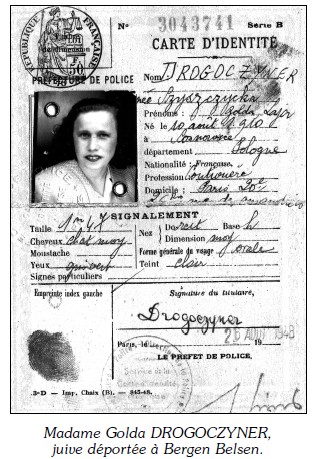 N° 3043741 Série B
CARTE D'IDENTITÉ
RÉPUBLIQUE FRANÇAISE
PRÉFECTURE DE POLICE
Nom DROGOCZYNER
née Szyszczycka
Prénoms : Golda
Né le 10 août
à
département Pologne
Nationalité : Française.
Profession
Domicile : Paris 20e
SIGNALEMENT
Taille 1m 47
Cheveux chat moy
Moustache
Yeux
Signes particuliers
Nez Dos Base
Dimension moy
Forme générale du visage ovale
Teint clair
Empreinte index gauche
Signature du titulaire,
Drogoczyner
Paris, le 26 AOUT 1948 19
LE PRÉFET DE POLICE,
Service de la
Carte d'identité
3*D — Imp. Chaix (B). — 845-48.
Madame Golda DROGOCZYNER,
juive déportée à Bergen Belsen.